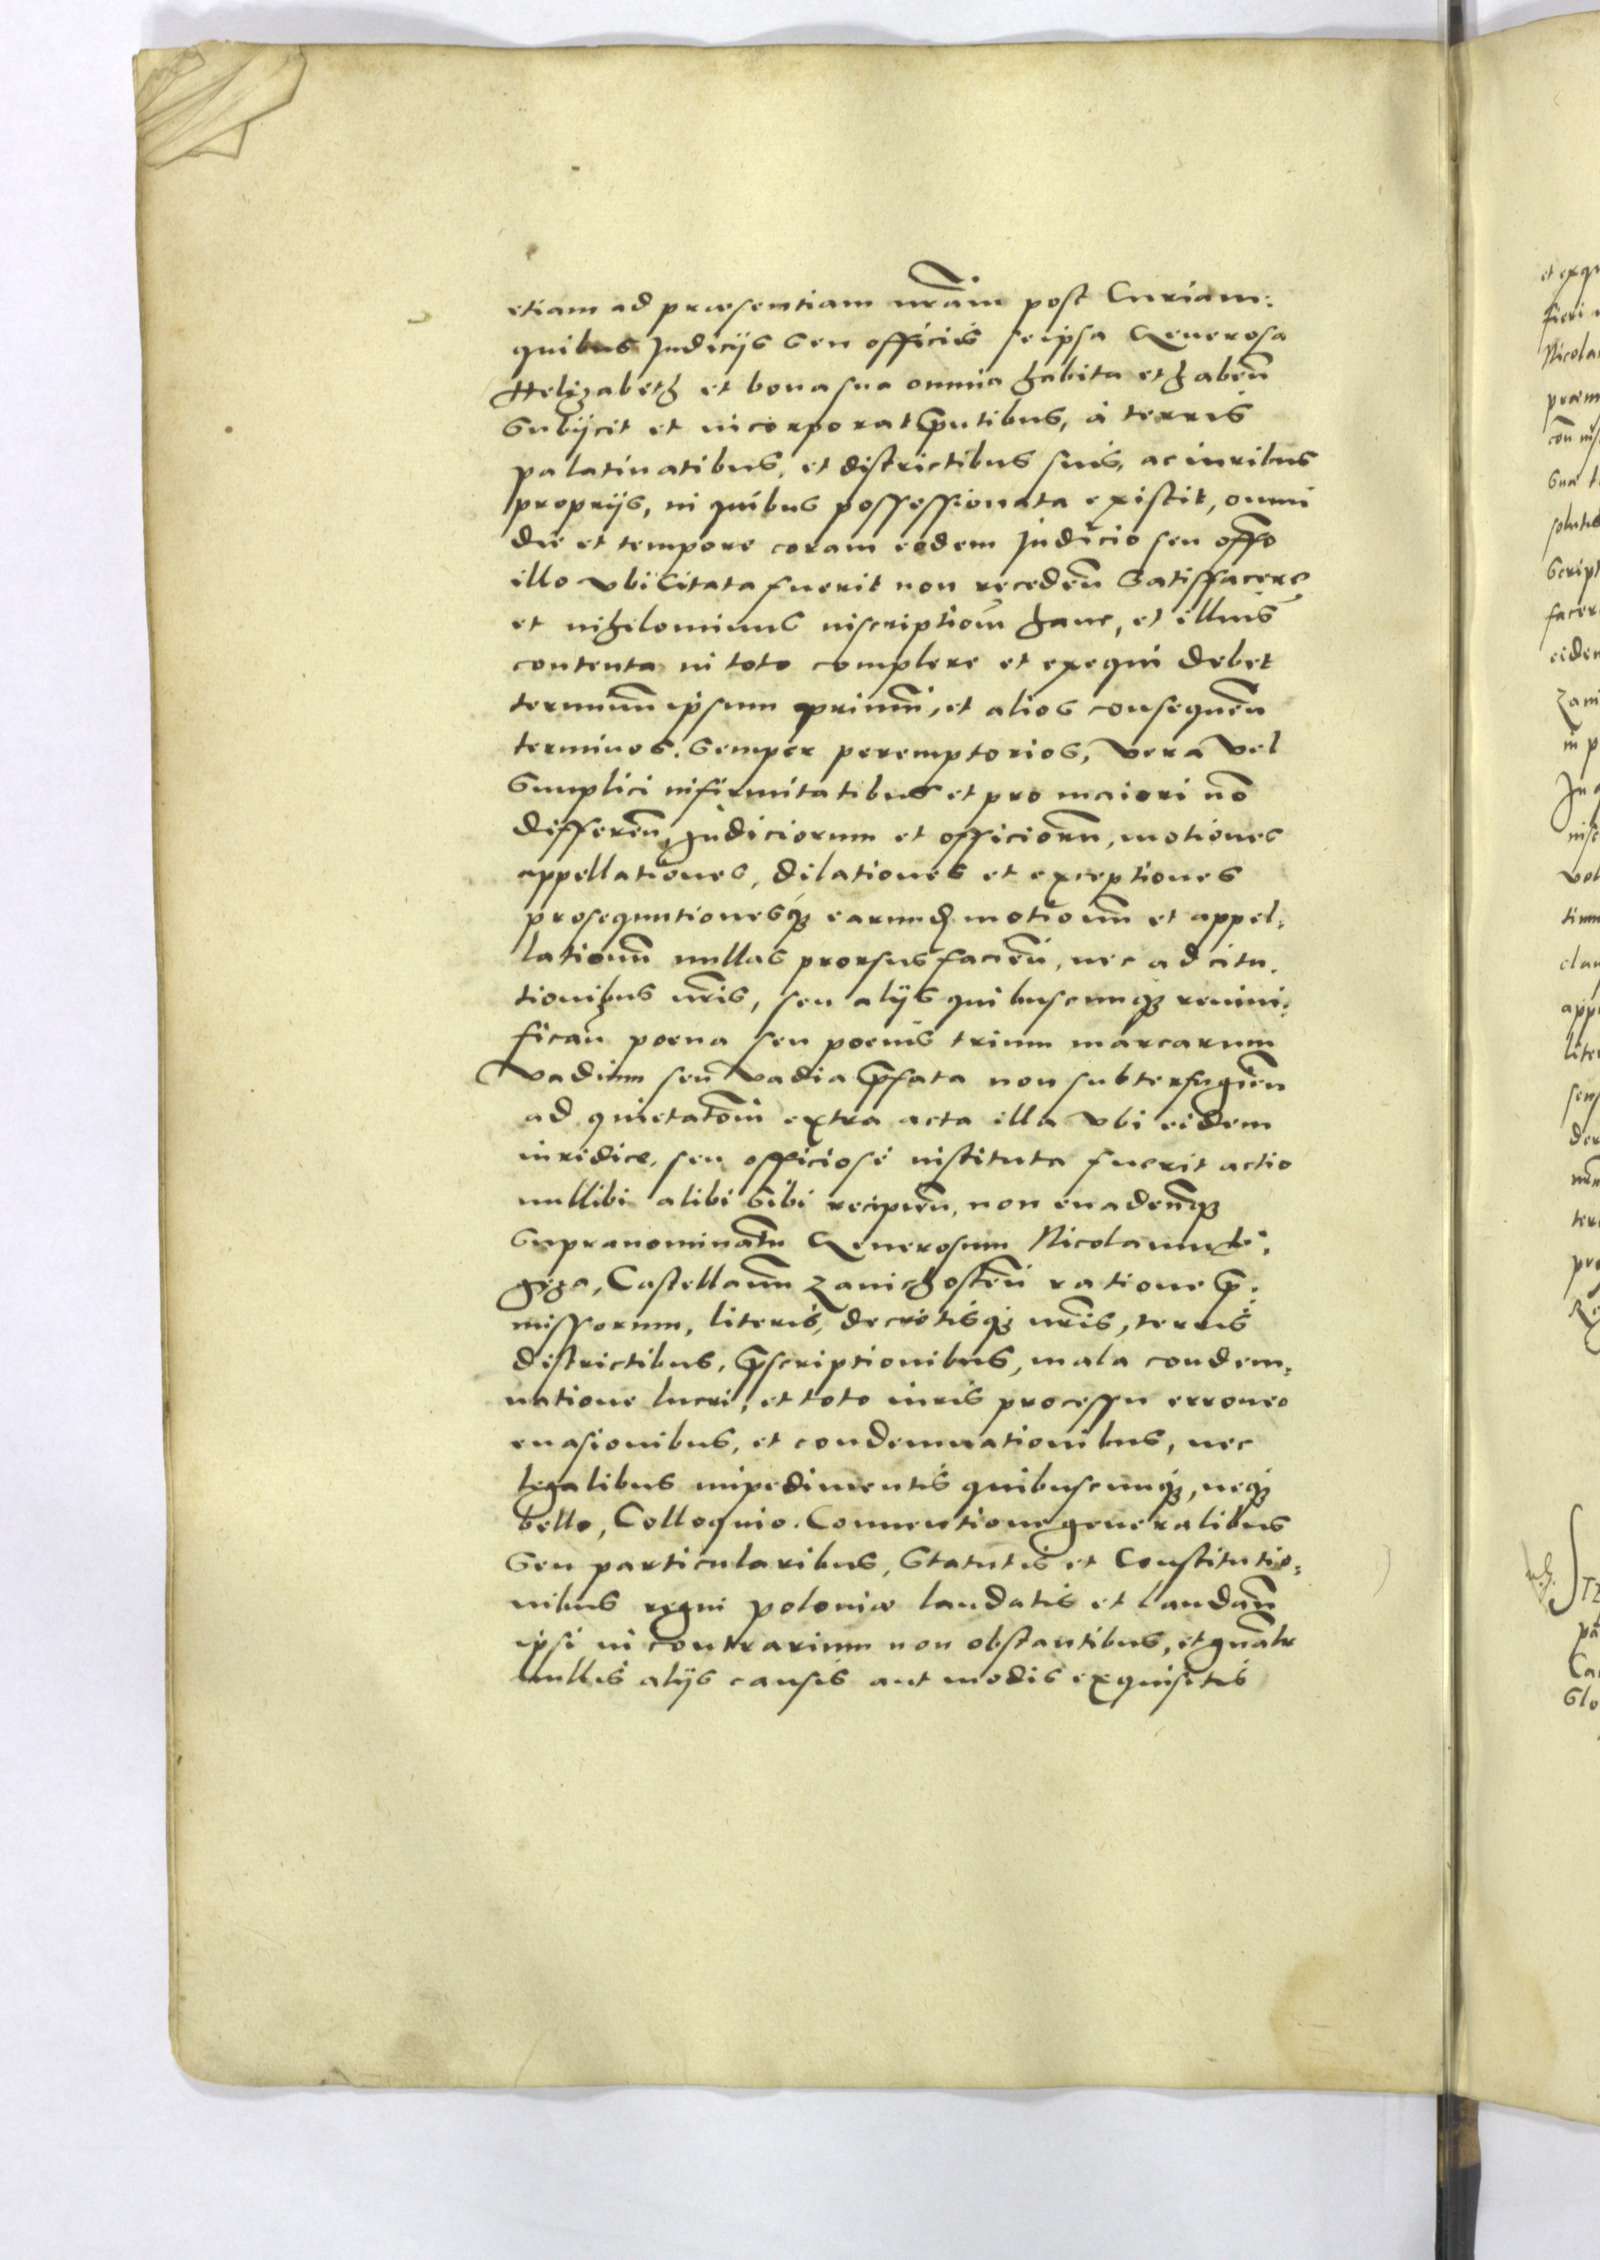 etiam ad præsentiam nram̃ post Curiam:
quibus Judicijs seu officiis seipsa Generosa
Helizabeth et bona sua omnia habita et habeñ
Subijcit et incorporat p̃ntibus, à terris
palatinatibus, et districtibus suis, ac iuribus
proprijs, in quibus possessionata existit, omni
die et tempore coram eodem Judicio seu offo
illo vbi Citata fuerit non recedeñ Satisfacere
et nihilominus inscriptiom̃ hanc, et illius
contenta in toto complere et exequi debet
terminũ ipsum primũ, et alios consequeñ
terminos. Semper peremptorios, vera vel
Simplici infirmitatibus et pro maiori nõ
differeñ, Judiciorum et officiorũ, motiones
appellationes, dilationes et exceptiones
prosequutionesq₃ earund motionũ et appel:
lationũ nullas prorsus facieñ, nec ad cita:
tionibus nr̃is, seu alijs quibuscunq₃ reiini:
ficañ poena seu poenis trium marcarum
vadium seu vadia p̃fata non subterfugieñ
ad quietatom̃ extra acta illa vbi eidem
iuridice, seu officiosè instituta fuerit actio
nullibi alibi Sibi recipieñ, non euadeñq₃
Supranominatũ Generosum Nicolaum
Castellanũ Zanichosteñ ratione p̃:
missorum, literis, decretisq₃ nr̃is, terris
districtibus, p̃scriptionibus, mala condem:
natione lucri, et toto iuris processu erroneo
euasionibus, et condemnationibus, nec
legalibus impedimentis quibuscunq₃, neq₃
bello, Colloquio. Conuentione generalibus
Seu particularibus, Statutis et Constitutio:
nibus regni poloniæ laudatis et laudañ
ipsi in contrarium non obstantibus, et gnãlr
nullis alijs causis aut modis exquisitis